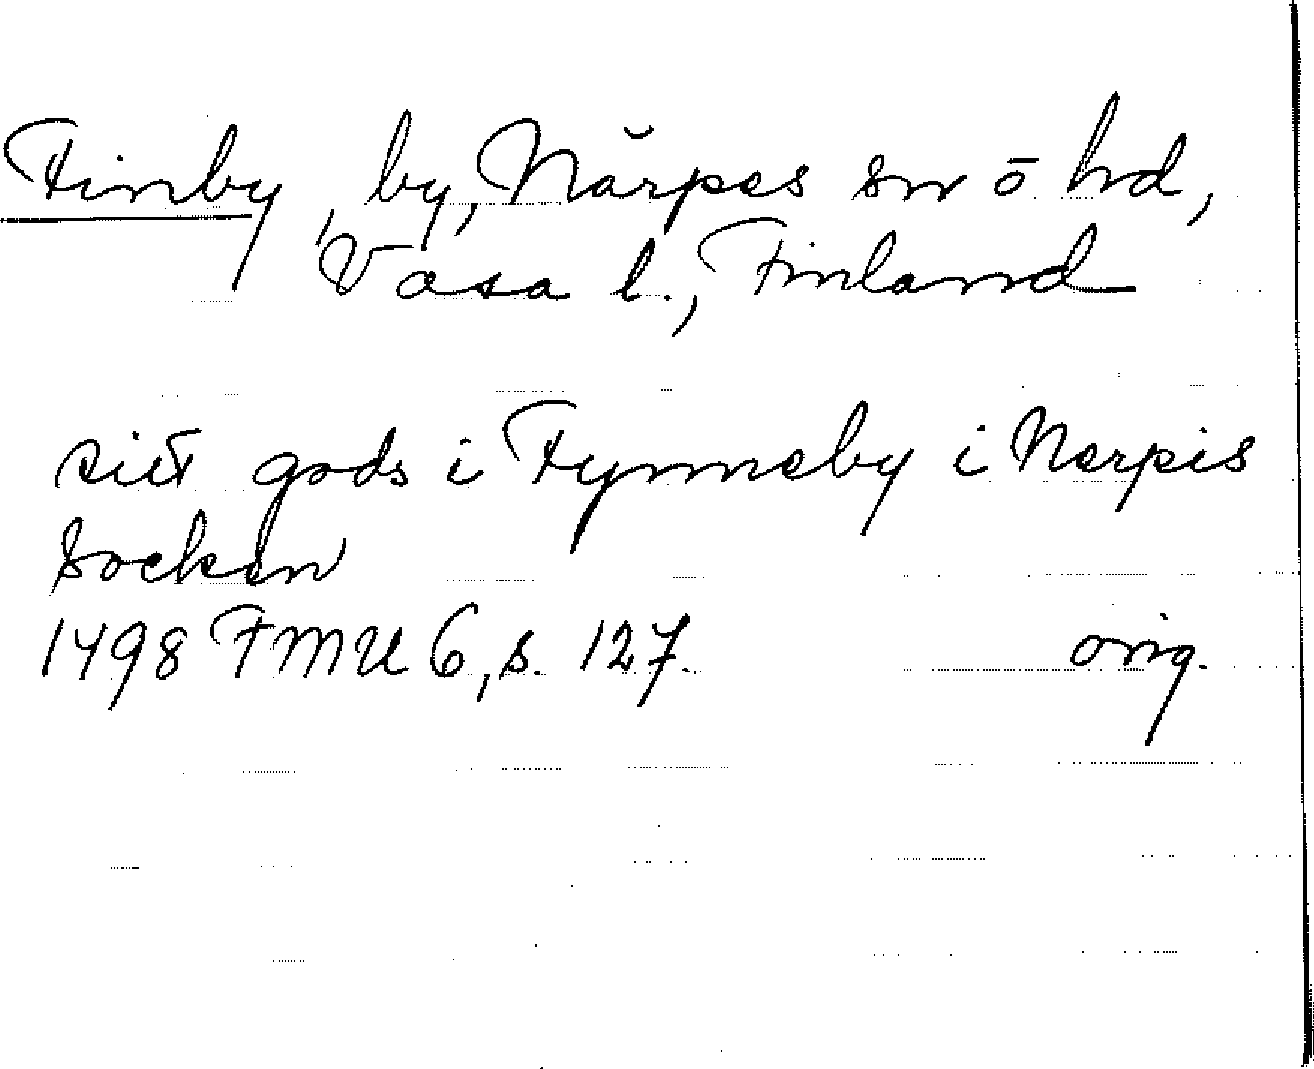 Finby, by, Närpes sn ö hd,
Vasa l., Finland
siit gods i Fynneby i Nerpis
Socken
1498 FMU 6, s. 127. orig.